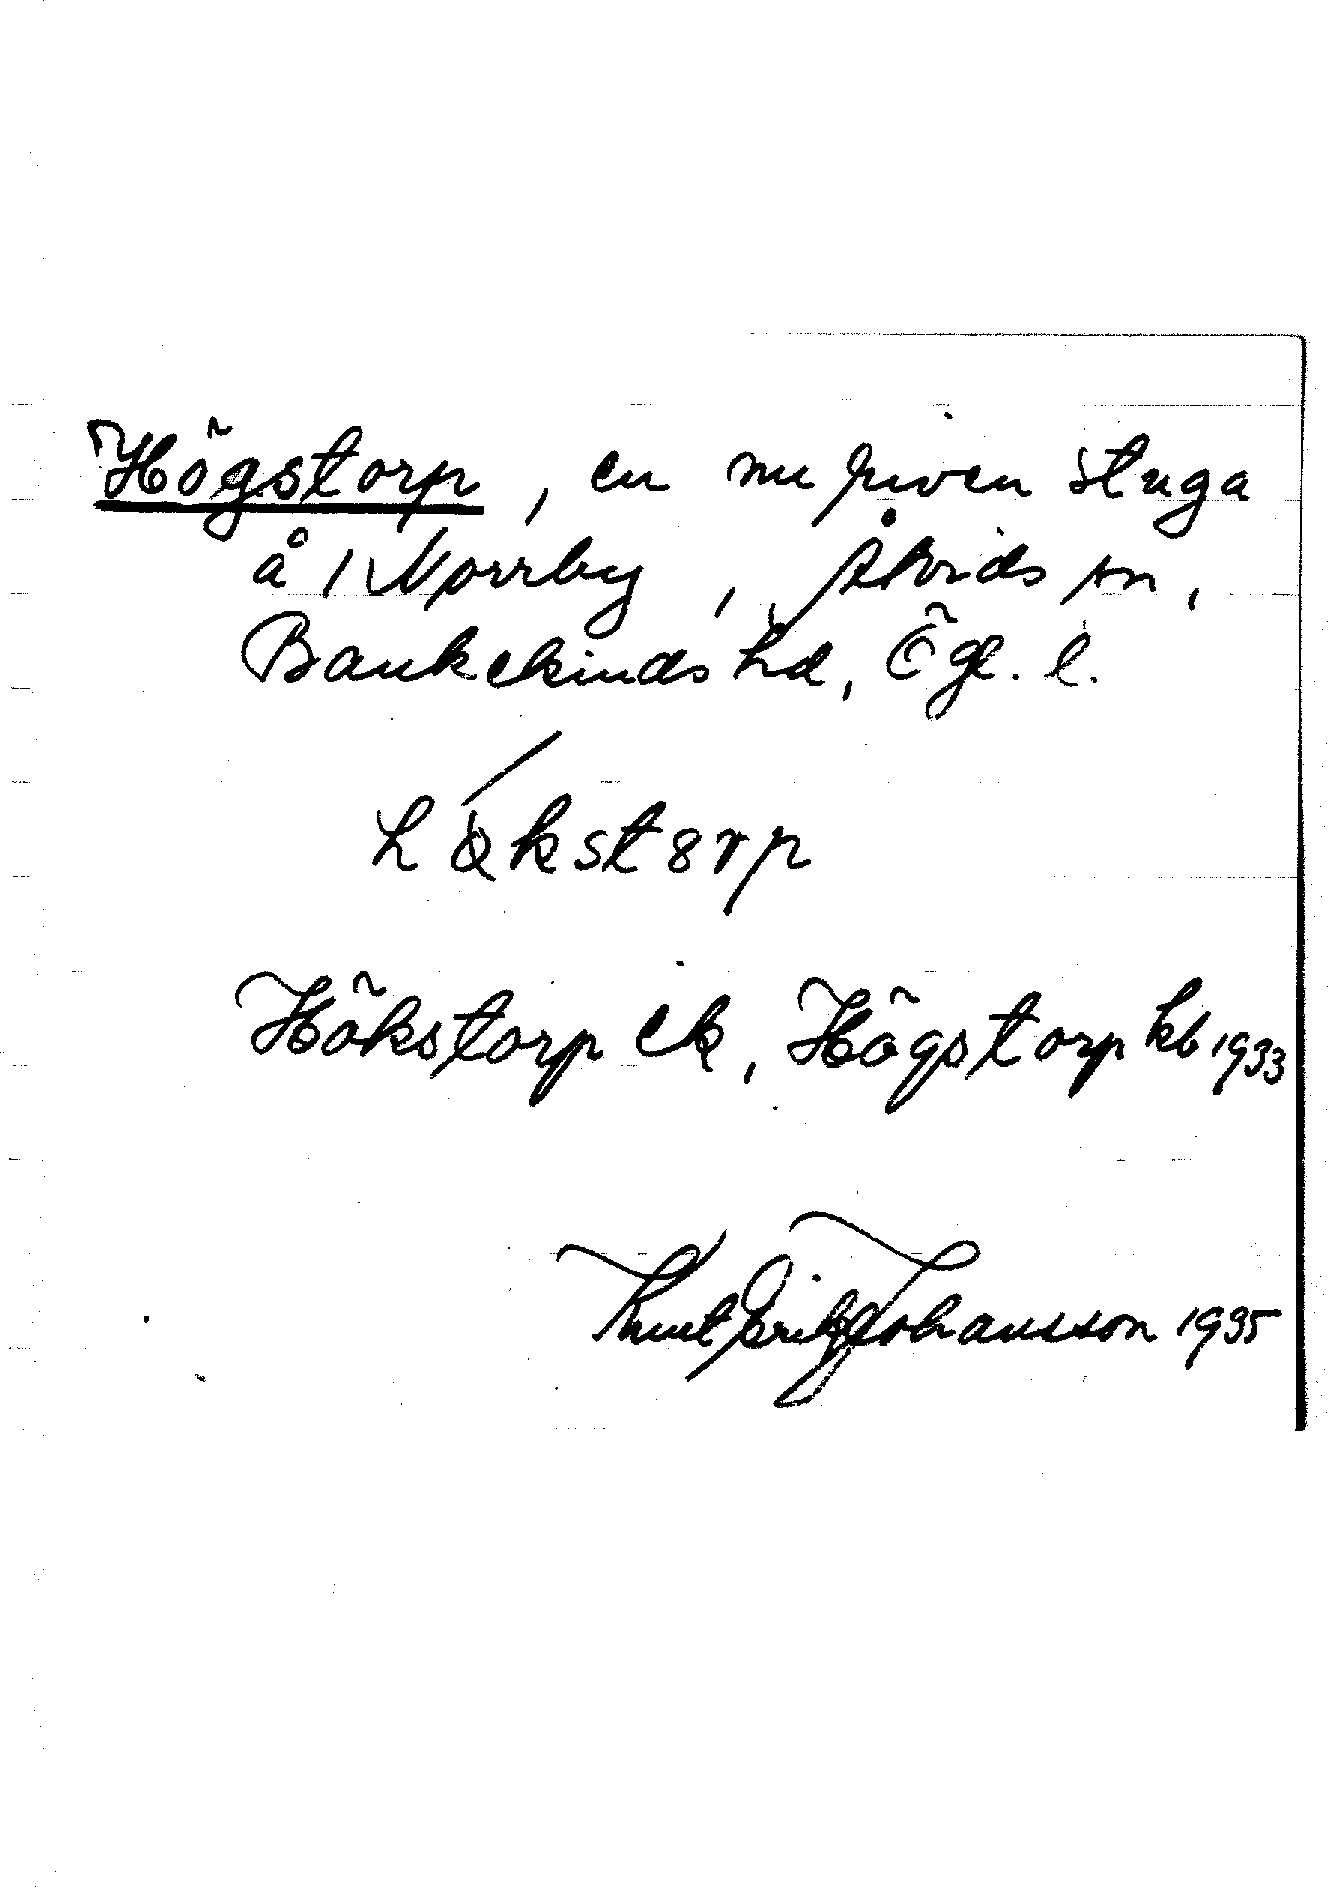 Högstorp, en nu riven stuga
å 1 Norrby, Åtvids sn,
Bankekinds hd, Ögl. l.
Hökstorp ek, Högstorp kb 1933
Knut Erik Johansson 1935